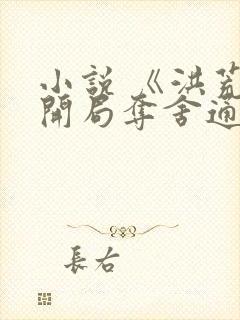 小說《洪荒
開局奪舍通
長右